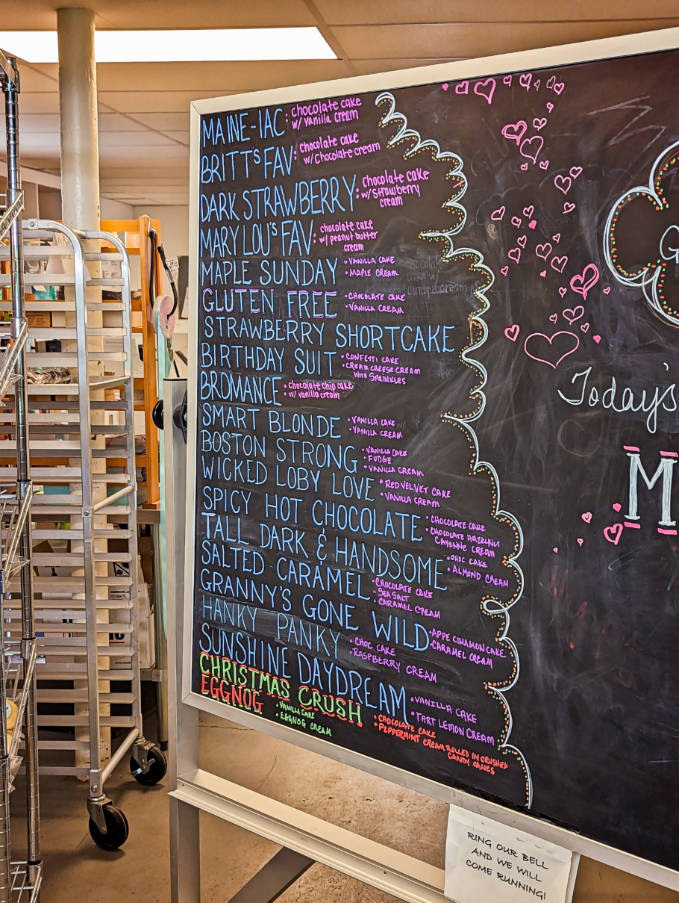 MAINE-IAC: chocolate cake
w/ Vanilla cream
BRITT'S FAV: chocolate cake
w/chocolate cream
DARK STRAWBERRY: chocolate cake
w/strawberry
cream
MARY LOU'S FAV: chocolate cake
w/ peanut butter
cream
MAPLE SUNDAY • VANILLA CAKE
• MAPLE CREAM
GLUTEN FREE • CHOCOLATE CAKE
• VANILLA CREAM
STRAWBERRY SHORTCAKE
BIRTHDAY SUIT • CONFETTI CAKE
• CREAM CHEESE CREAM
WITH SPRINKLES
BROMANCE • chocolate chip cake
w/ vanilla cream
SMART BLONDE • VANILLA CAKE
• VANILLA CREAM
BOSTON STRONG • VANILLA CAKE
• FUDGE
• VANILLA CREAM
WICKED LOBY LOVE • RED VELVET CAKE
• VANILLA CREAM
SPICY HOT CHOCOLATE • CHOCOLATE CAKE
• CHOCOLATE HAZELNUT
CAYENNE CREAM
TALL DARK & HANDSOME • CHOC CAKE
• ALMOND CREAM
SALTED CARAMEL • CHOCOLATE CAKE
• SEA SALT
• CARAMEL CREAM
GRANNY'S GONE WILD • APPE CINNAMON CAKE
• CARAMEL CREAM
HANKY PANKY • CHOC CAKE
• RASPBERRY CREAM
SUNSHINE DAYDREAM • VANILLA CAKE
• TART LEMON CREAM
CHRISTMAS CRUSH • CHOCOLATE CAKE
• PEPPERMINT CREAM ROLLED IN CRUSHED
CANDY CANES
EGGNOG • VANILLA CAKE
• EGGNOG CREAM
G
Today's
M
RING OUR BELL
AND WE WILL
COME RUNNING!